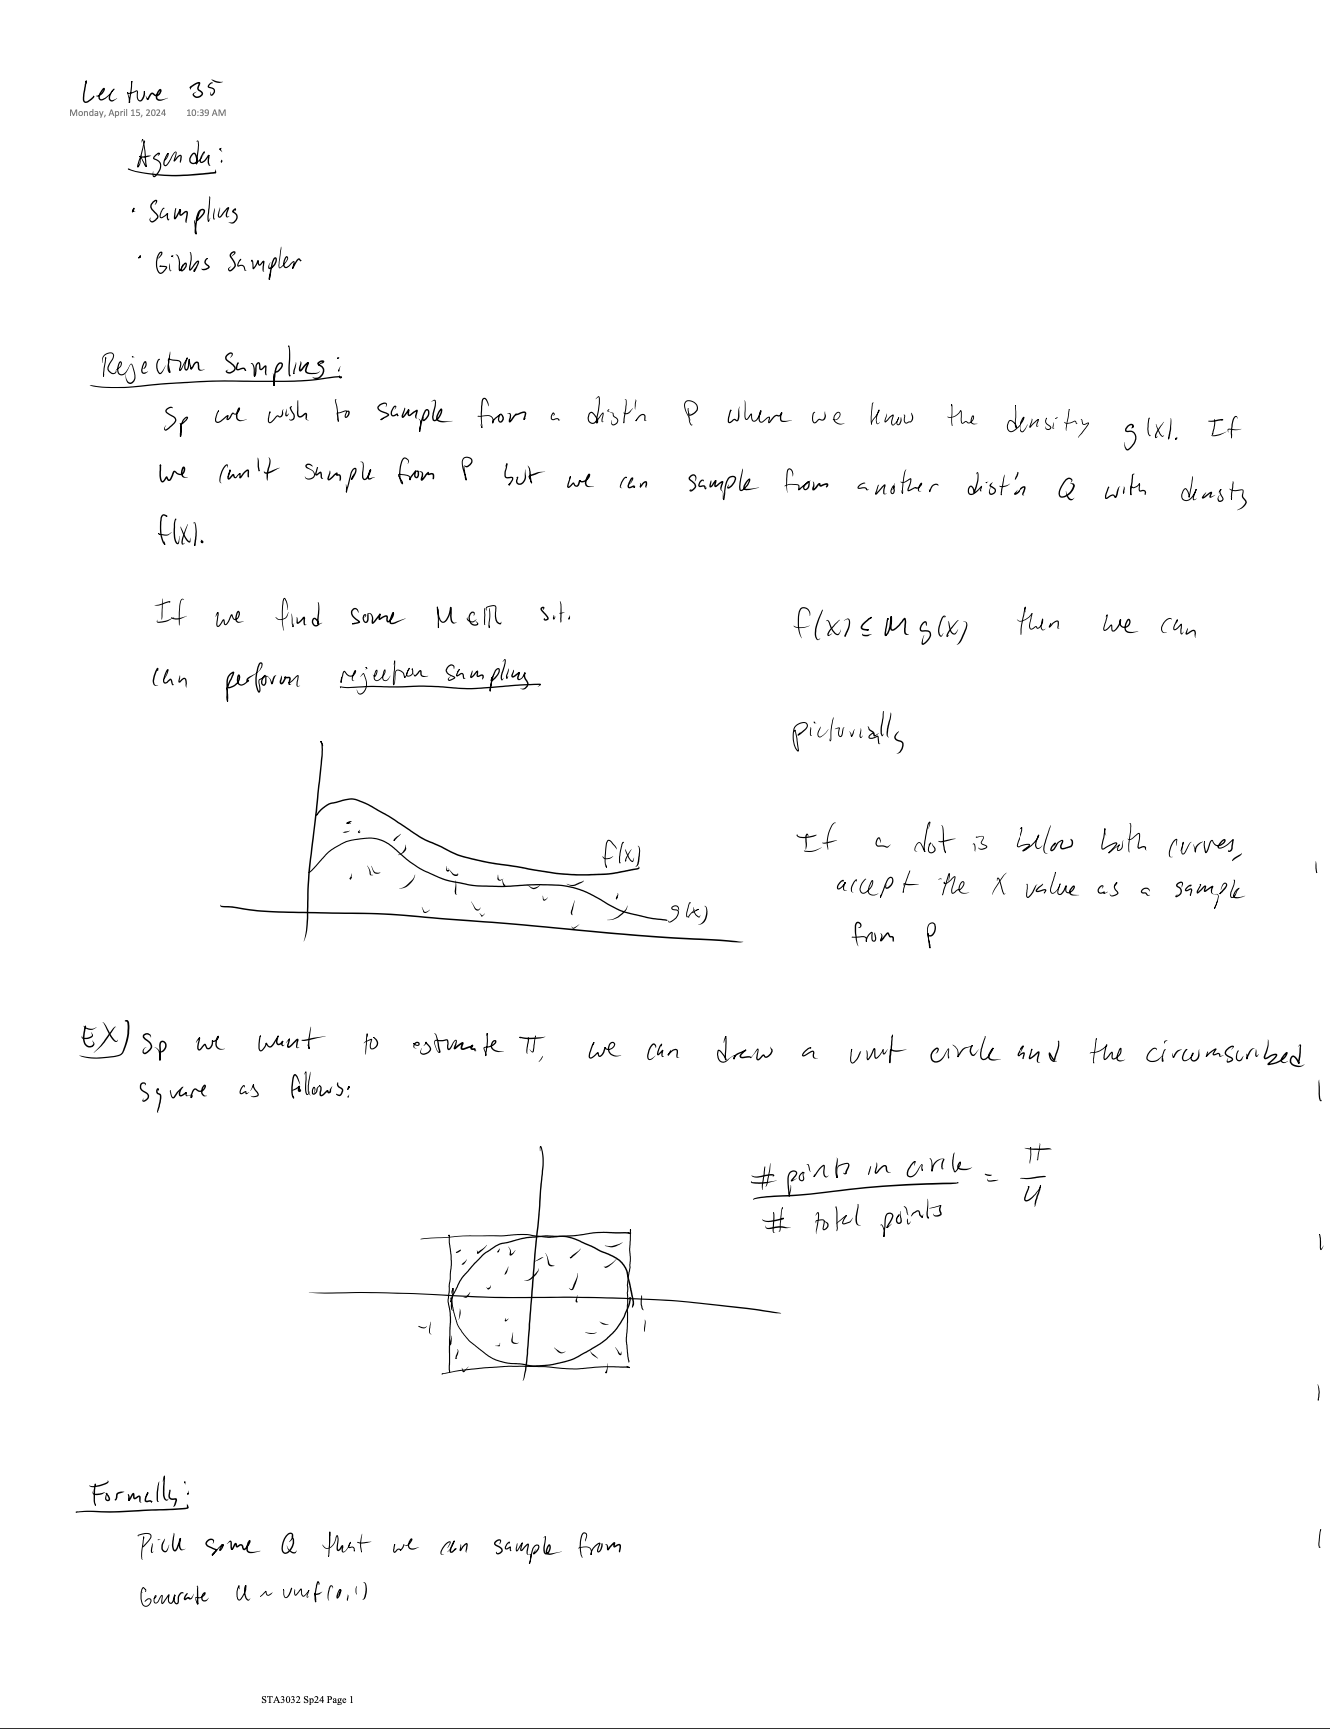 Lecture 35
Monday, April 15, 2024 10:39 AM
Agenda:
· Sampling
· Gibbs Sampler
Rejection Sampling:
Sp we wish to sample from a dist'n P where we know the density g(x). If
we can't sample from P but we can sample from another dist'n Q with density
f(x).
If we find some M∈ℝ s.t. f(x) ≤ M g(x) then we can
can perform rejection sampling
pictorially
f(x)
g(x)
If a dot is below both curves,
accept the X value as a sample
from P
EX) Sp we want to estimate π, we can draw a unit circle and the circumscribed
square as follows:
# points in circle / # total points = π/4
-1 1
Formally:
Pick some Q that we can sample from
Generate U ~ unif(0,1)
STA3032 Sp24 Page 1